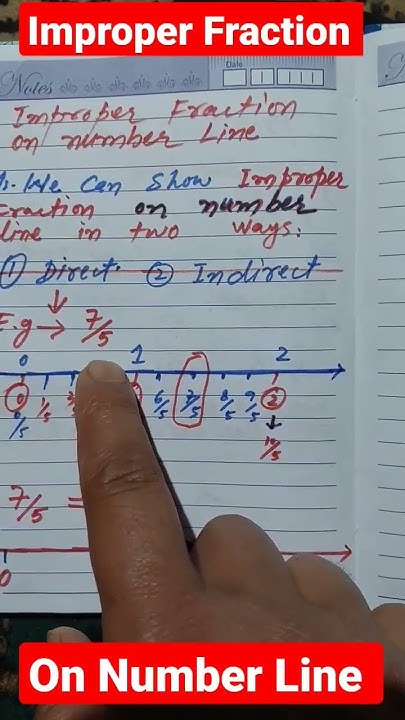 Improper Fraction
Notes
Date
Improper Fraction
on number Line
We Can Show Improper
Fraction on number
line in two Ways:
① Direct. ② Indirect
E.g → 7/5
0 1 2
0 1/5 6/5 7/5 8/5 9/5 2
0/5 10/5
7/5 =
0
On Number Line